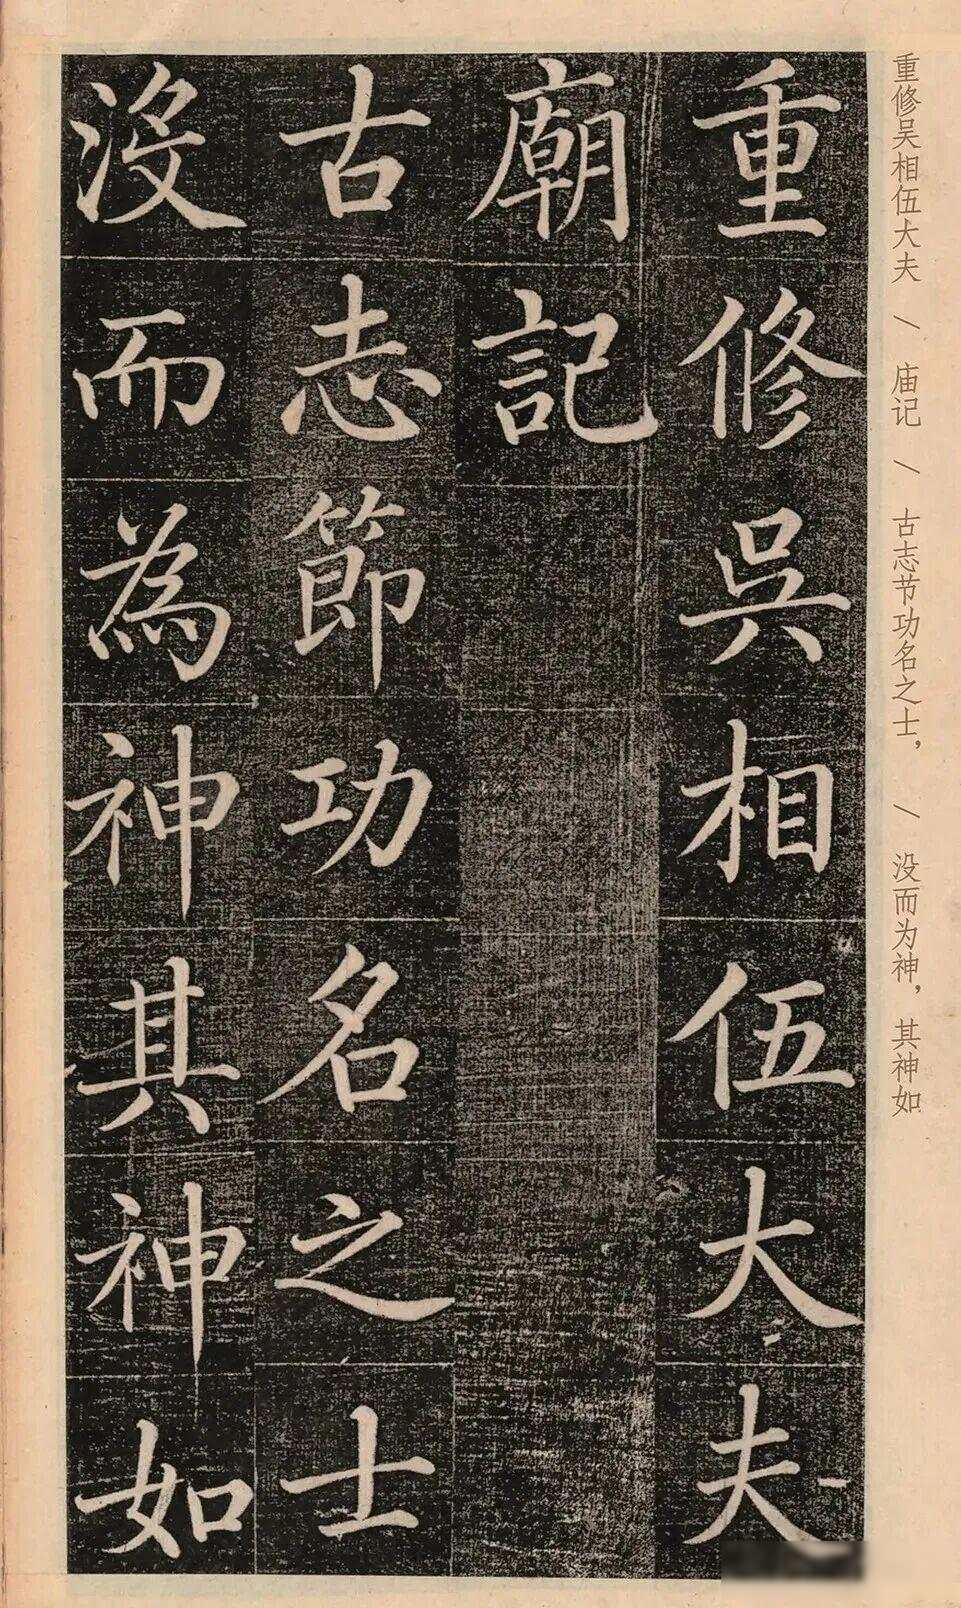 重修吳相伍大夫
廟記
古志節功名之士
没而為神其神如
重修吴相伍大夫 \ 庙记 \ 古志节功名之士， \ 没而为神，其神如